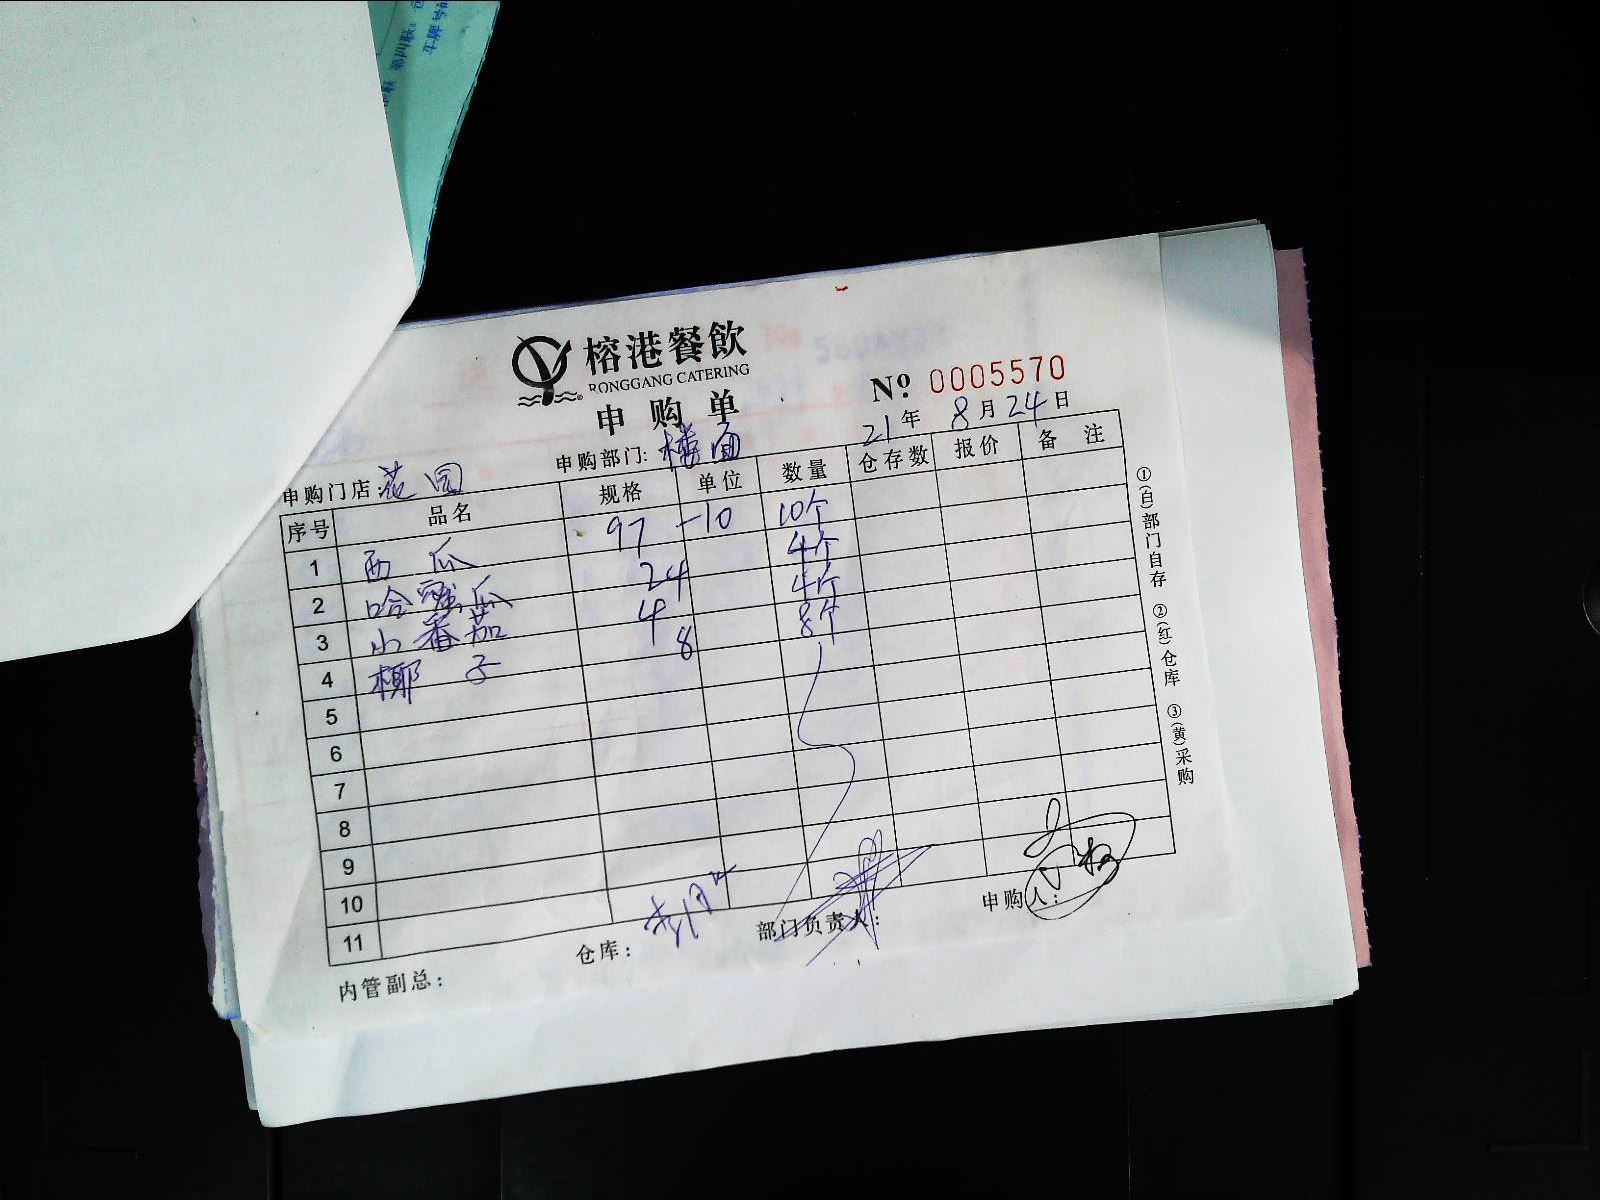 榕港餐飲
RONGGANG CATERING
申购单
Nº 0005570
21年 8月 24日
申购门店:花园 申购部门:楼面
序号 品名 规格 单位 数量 仓存数 报价 备注
1 西瓜 97 -10 10个
2 哈密瓜 24 4个
3 小番茄 4 4个
4 椰子 8 8个
5
6
7
8
9
10
11
内管副总: 仓库: 部门负责人: 申购人:
①(白)部门自存 ②(红)仓库 ③(黄)采购